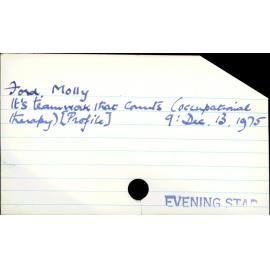 Ford, Molly
It's teamwork that counts (occupational
therapy) [Profile] 9: Dec. 13, 1975
EVENING STAR